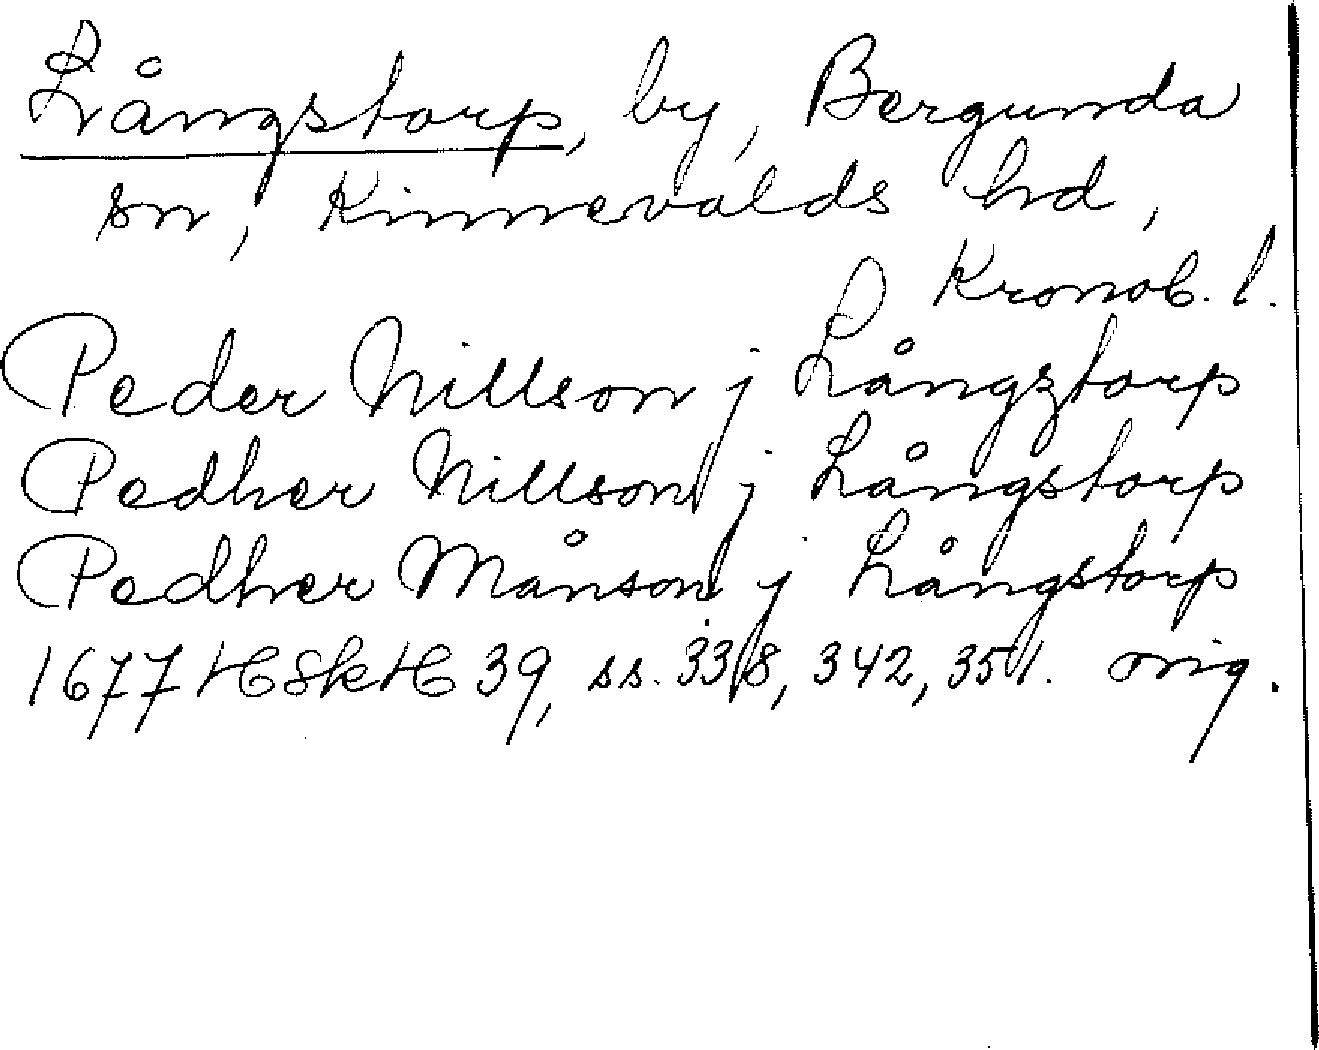 Långstorp, by, Bergunda
sn, Kinnevalds hd,
Kronob. l.
Peder Nillson j Långztorp
Pedher Nillson j Långstorp
Pedher Månson j Långstorp
1677 HSkH 39, ss. 338, 342, 351. orig.